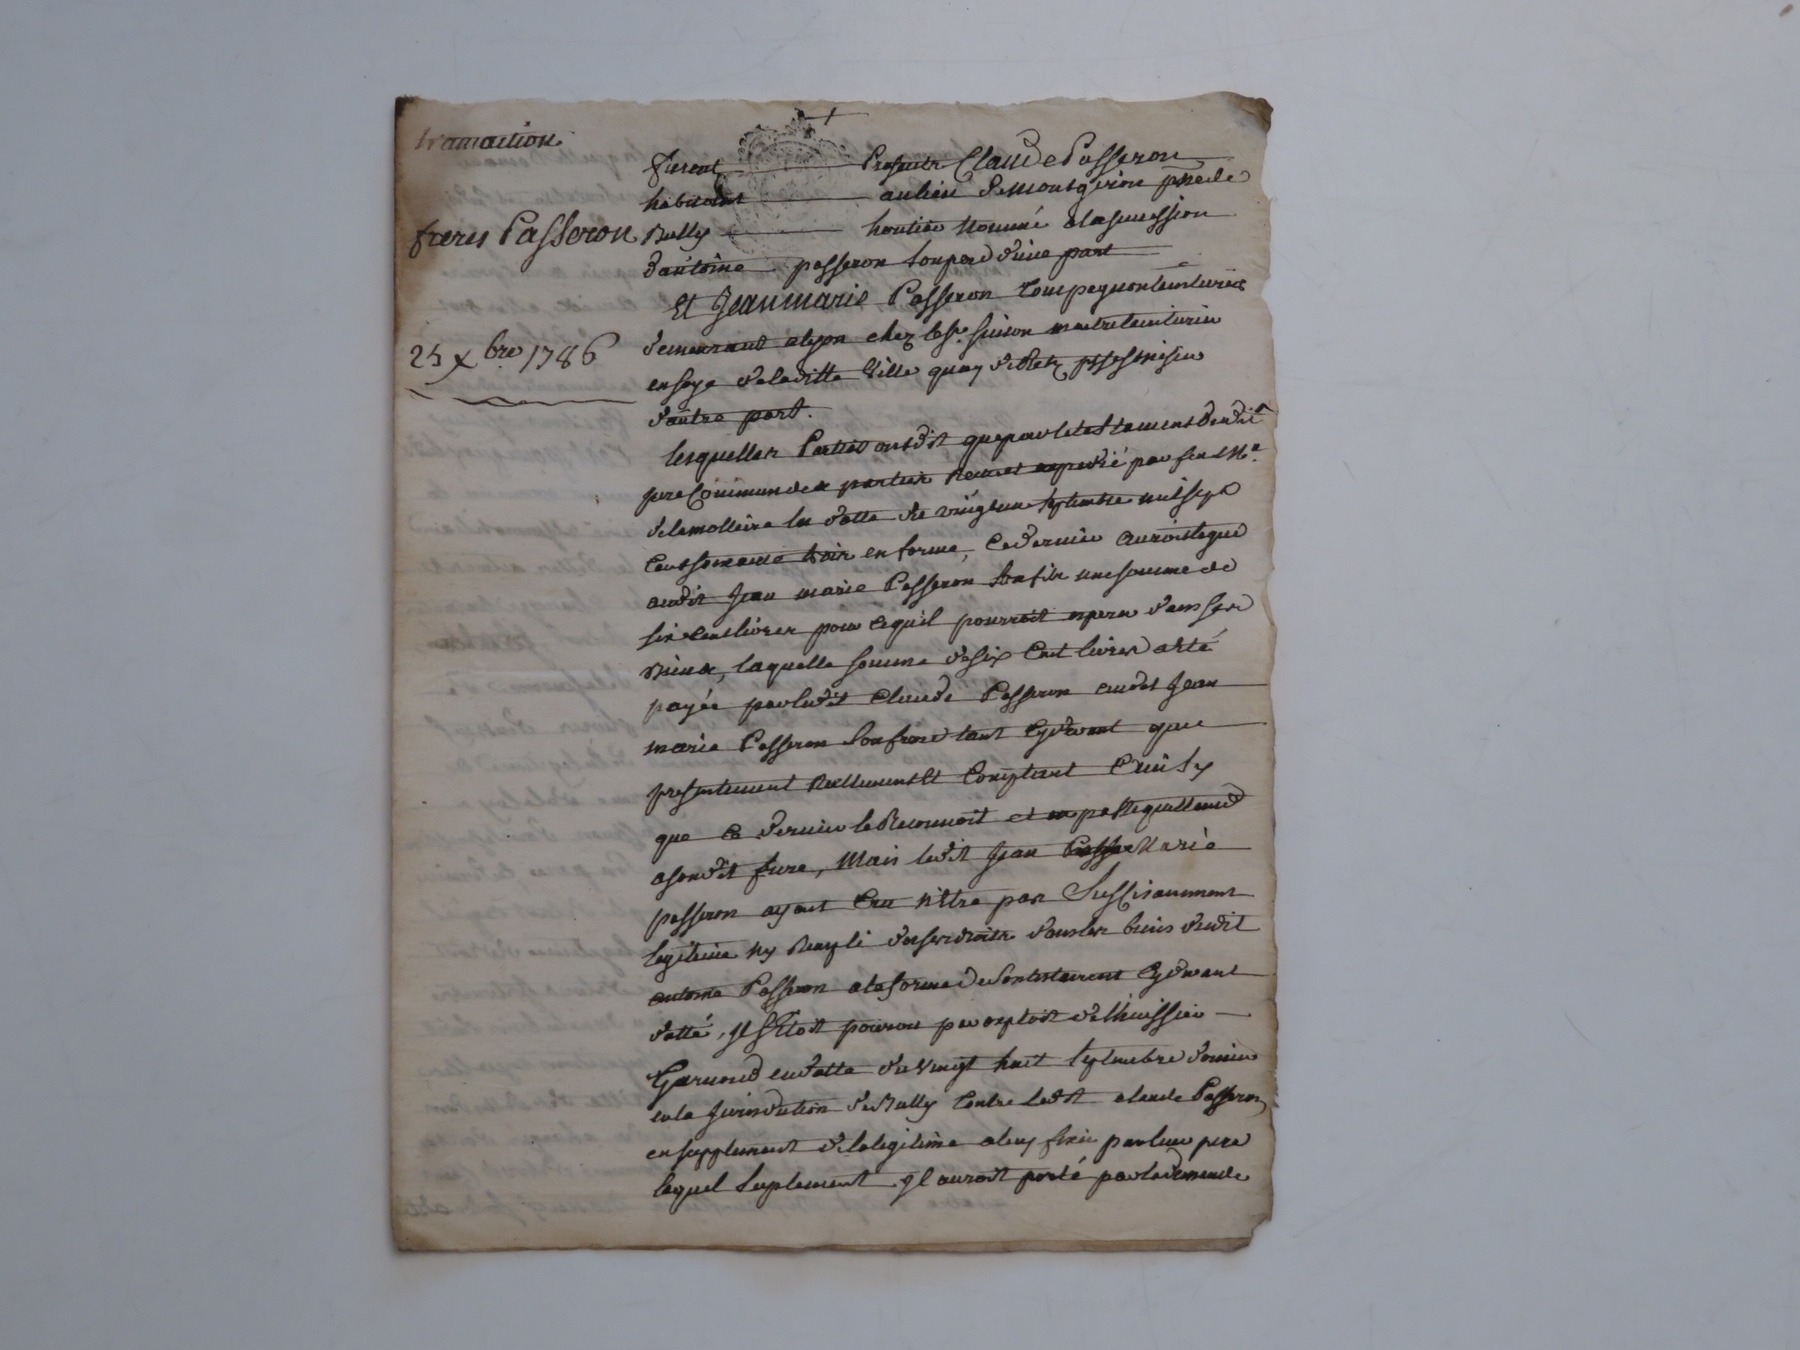 transaction
freres Passeron
25 xbre 1786
furent presents Claude Passeron
habitant au lieu de Montgirin psse de
Bully heritier nommé a la sucession
d'antoine passeron son pere d'une part
Et Jean marie Passeron Compagnon teinturier
demeurant a lyon chez le sr. maitre teinturier
en soye de la ditte Ville quay de Retz psse
d'autre part.
lesquelles Parties ont dit que par le testament dudit
pere Commun des parties Receu et expedié par feu Me.
delamolliere en datte du vingt un septembre mil sept
Cent soixante trois en forme, Ce dernier auroit legué
audit Jean marie Passeron son fils une somme de
six Cent livres pour ce qu'il pourroit esperer dans ses
biens, laquelle somme de six Cent livres a eté
payée par ledit Claude Passeron audit Jean
marie Passeron son frere tant Cydevant que
presentement Reellement et Comptant Ainsy
que Ce dernier le Reconnoit et en passe quittance
a son dit frere, Mais ledit Jean Marie
passeron ayant Cru n'Etre pas Suffisamment
legitimé ny Remply de ses droits dans les biens dudit
antoine Passeron a la forme de son testament Cydevant
datté, Il s'Etoit pourvu par exploit de l'huissier
en datte du Vingt huit septembre dernier
en la Jurisdiction de Bully Contre ledit Claude Passeron
en supplement de la legitime a luy fixée par leur pere
lequel suplement Il auroit porté par la demande